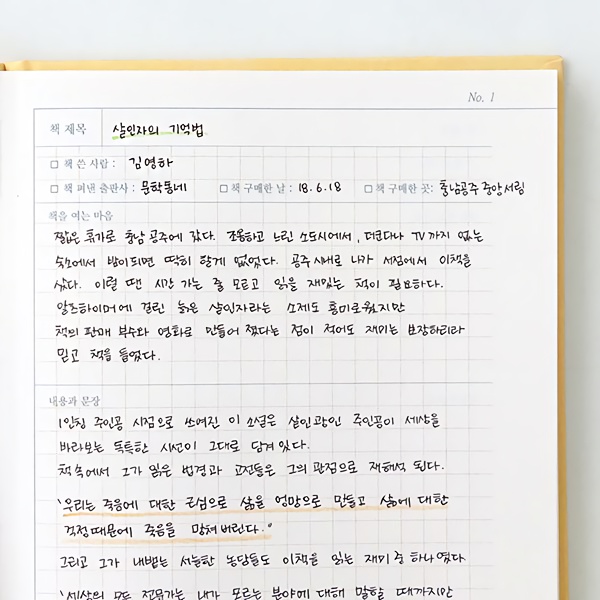 No. 1
책 제목 살인자의 기억법
책 쓴 사람 : 김영하
책 펴낸 출판사 : 문학동네 책 구매한 날 : 18.6.18 책 구매한 곳: 충남공주 중앙서림
책을 여는 마음
짧은 휴가로 충남 공주에 갔다. 조용하고 느린 소도시에서, 더군다나 TV까지 없는
숙소에서 밤이되면 딱히 할게 없었다. 공주 시내로 나가 서점에서 이책을
샀다. 이럴 땐 시간 가는 줄 모르고 읽을 재밌는 책이 필요하다.
알츠하이머에 걸린 늙은 살인자라는 소재도 흥미로웠지만
책의 판매 부수와 영화로 만들어 졌다는 점이 적어도 재미는 보장하리라
믿고 책을 들었다.
내용과 문장
1인칭 주인공 시점으로 쓰여진 이 소설은 살인광인 주인공이 세상을
바라보는 독특한 시선이 그대로 담겨있다.
책 속에서 그가 읽은 반경과 고전들은 그의 관점으로 재해석 된다.
'우리는 죽음에 대한 근심으로 삶을 엉망으로 만들고 삶에 대한
걱정때문에 죽음을 망쳐버린다."
그리고 그가 내뱉는 서늘한 농담들도 이책을 읽는 재미 중 하나였다.
'세상의 모든 전문가는 내가 모르는 분야에 대해 말할 때까지만